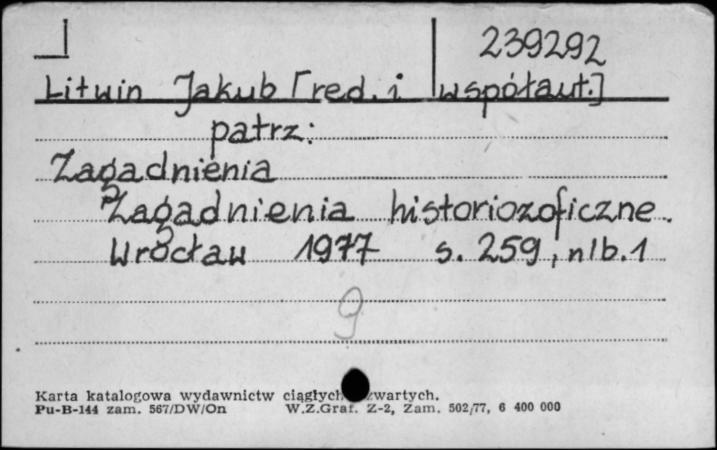 239292
Litwin Jakub [red. i współaut.]
patrz:
Zagadnienia
Zagadnienia historiozoficzne.
Wrocław 1977 s. 259, nlb. 1
9
Karta katalogowa wydawnictw ciągłych zwartych.
Pu-B-144 zam. 567/DW/On W.Z.Graf. Z-2, Zam. 502/77, 6 400 000